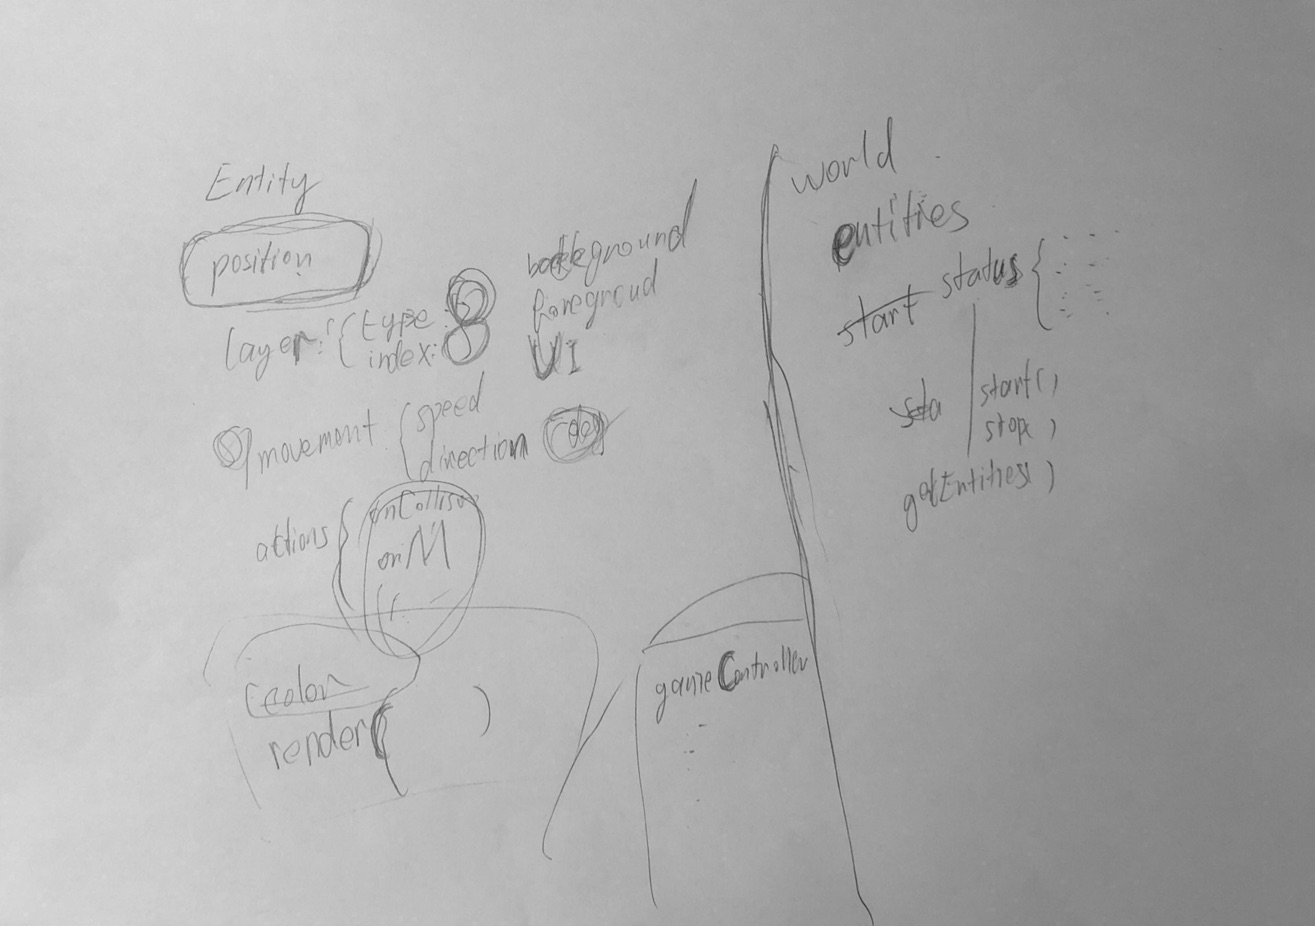 Entity
position
layer: { type:
index:
background
foregroud
UI
movement { speed
direction
actions { onCollis
onM
color
render( )
world
entities
start status {
sta
start( )
stop( )
getEntities( )
gameController